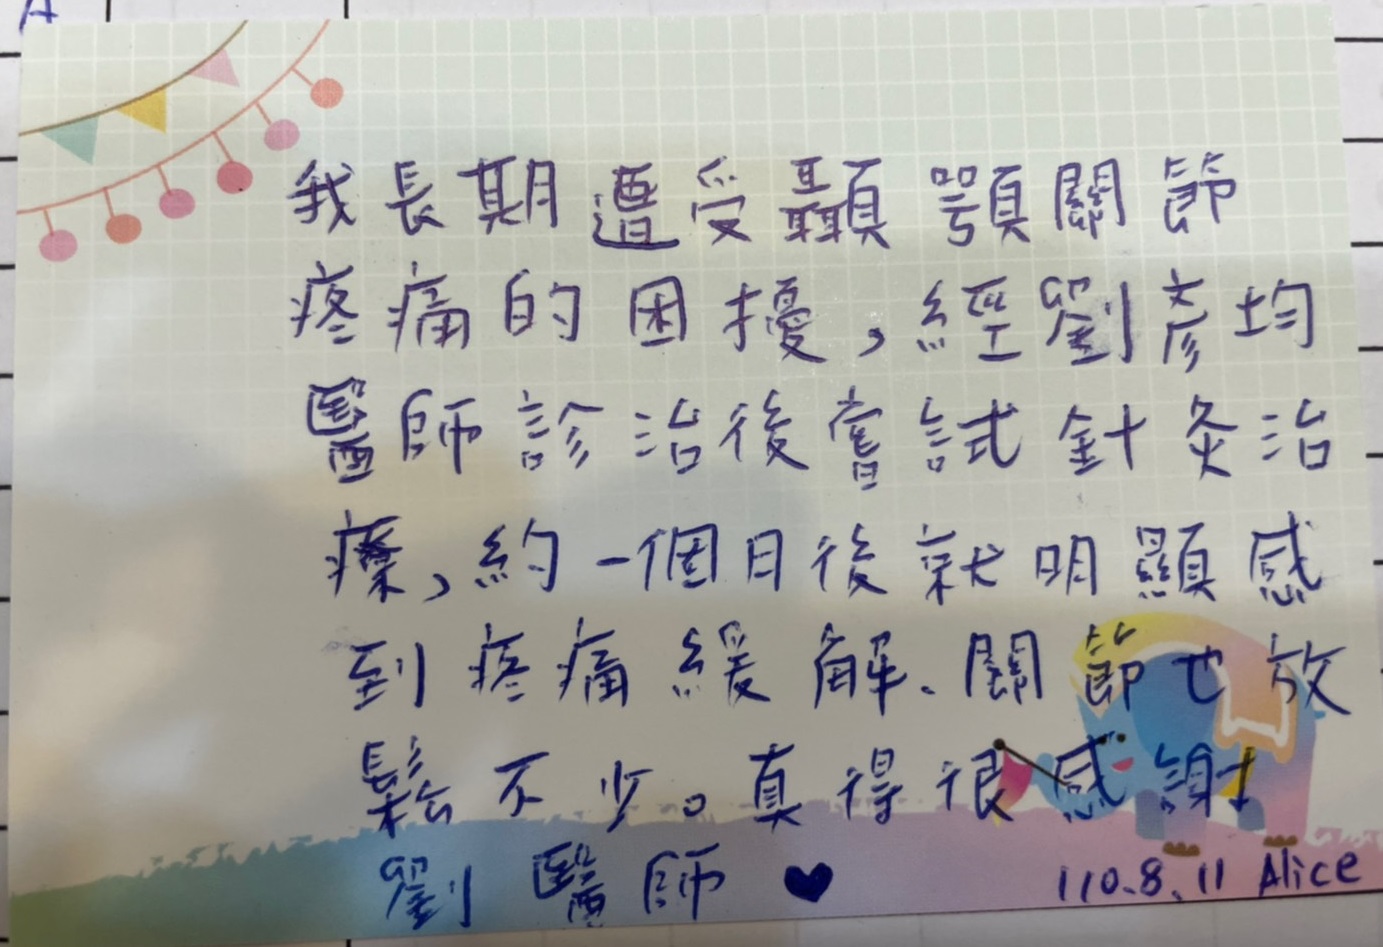 我長期遭受顳顎關節
疼痛的困擾,經劉彥均
醫師診治後嘗試針灸治
療,約一個月後就明顯感
到疼痛緩解、關節也放
鬆不少。真得很感謝
劉醫師♥
110.8.11 Alice